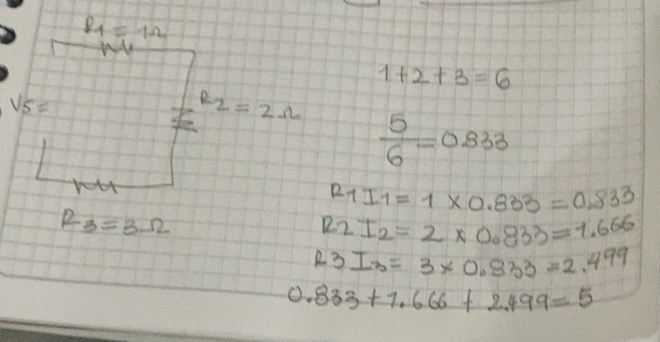 R1 = 1Ω
Vs =
R2 = 2Ω
R3 = 3Ω
1+2+3=6
5/6 = 0.833
R1 I1 = 1 × 0.833 = 0.833
R2 I2 = 2 × 0.833 = 1.666
R3 I3 = 3 × 0.833 = 2.499
0.833 + 1.666 + 2.499 = 5